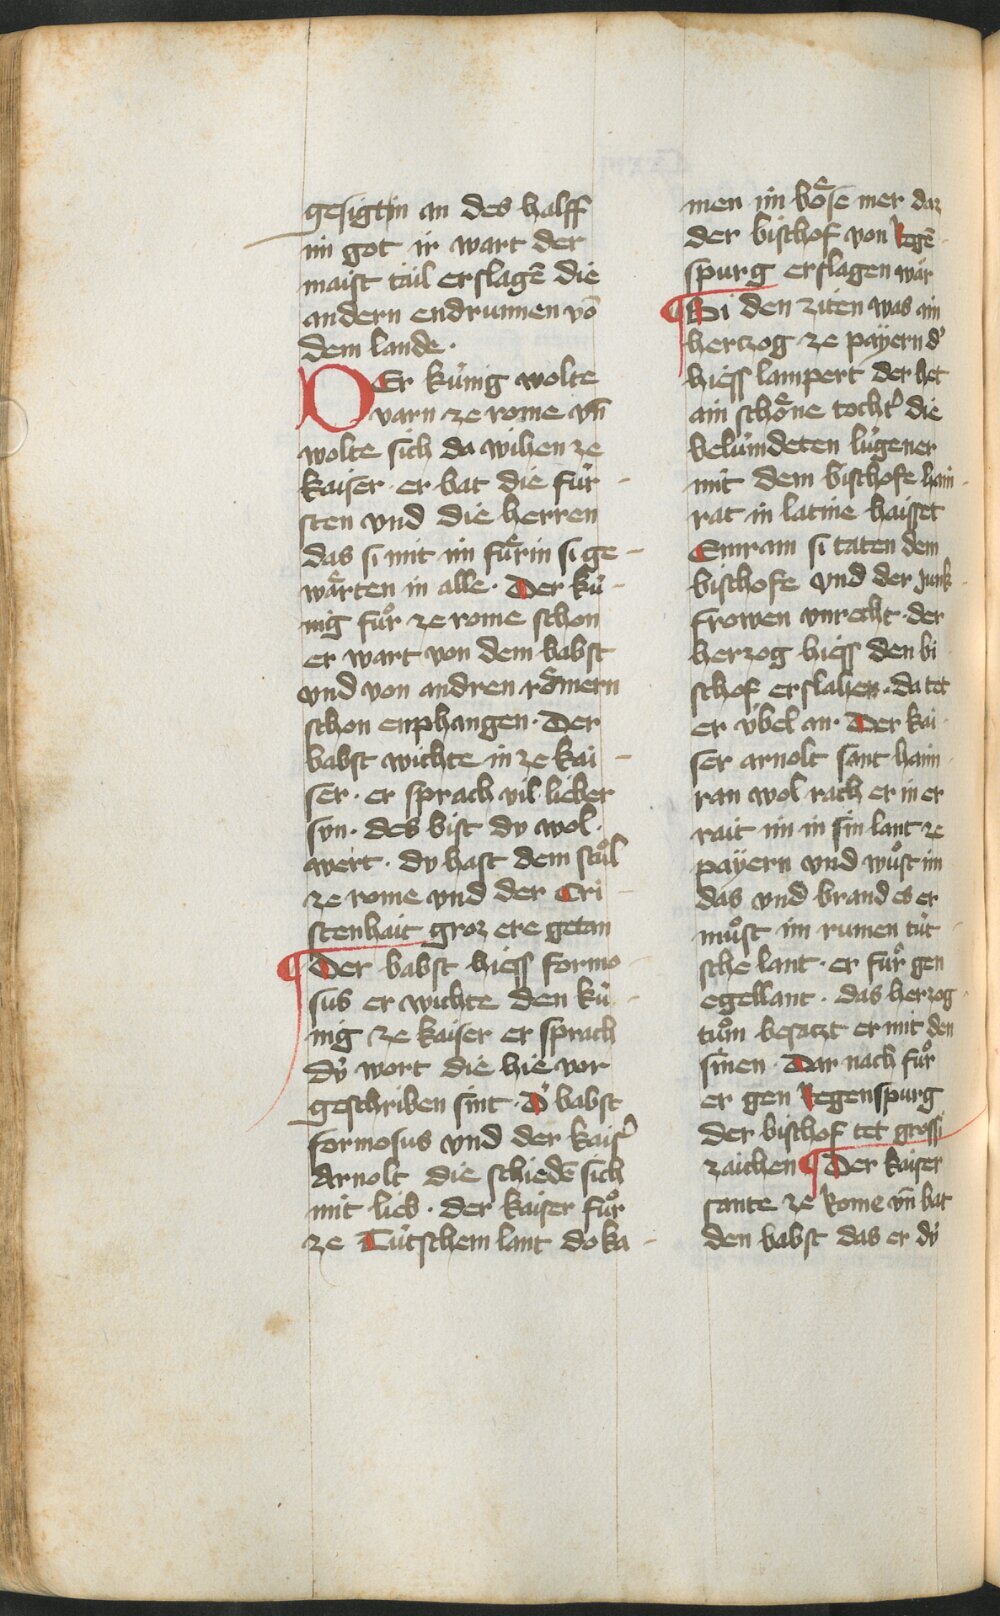 gesigtin an des halff
im got ir wart der
maist tail erslagē die
andern endrunnen vō
dem lande·
DEr kúnig wolte
varn ze rome vn̄
wolte sich da wihen ze
kaiser· er bat die fúr-
sten vnd die herren
das si mit im fuͤrin si ge-
waͤrten in alle· Der kú-
nig fuͦr ze rome schon
er wart von dem babst
vnd von andren roͤmern
schon enphangen· Der
babst wichte in ze kai-
ser· er sprach vil lieber
svn· des bist dv wol·
wert· dv hast dem stuͦl
ze rome vnd der Cri-
stenhait groz ere getan
¶ Der babst hiess formo-
sus er wichte den kú-
nig ze kaiser er sprach
dv́ wort die hie vor
geschriben sint· D' babst
formosus vnd der kais'
Arnolt die schiedē sich
mit lieb· der kaiser fuͦr
ze Tútschem lant do ka-
men im boͤse mer daz
der bischof von Regē-
spurg erslagen waͤr
¶ Bi den ziten was ain
hertzog ze payern d'
hiess lampert der het
ain schoͤne tocht' die
belúmdeten lúgener
mit dem bischofe hain-
rat in latine haisset
Emram si taten dem
bischofe vnd der junk-
frowen vnrecht· der
herzog hiess den bi-
schof erslahen· da tet
er v́bel an· Der kai-
ser arnolt sant haim-
ran wol rach er in er
rait im in sin lant ze
payern vnd wuͦst im
das vnd brand es er
muͦst im rumen tút-
sche lant· er fuͦr gen
egellant· das herzog-
tuͦm besatzt er mit den
sinen· Dar nach fuͦr
er gen Regenspurg
der bischof tet grossi
zaichen ¶ Der kaiser
sante ze Rome vn̄ bat
den babst das er dv́